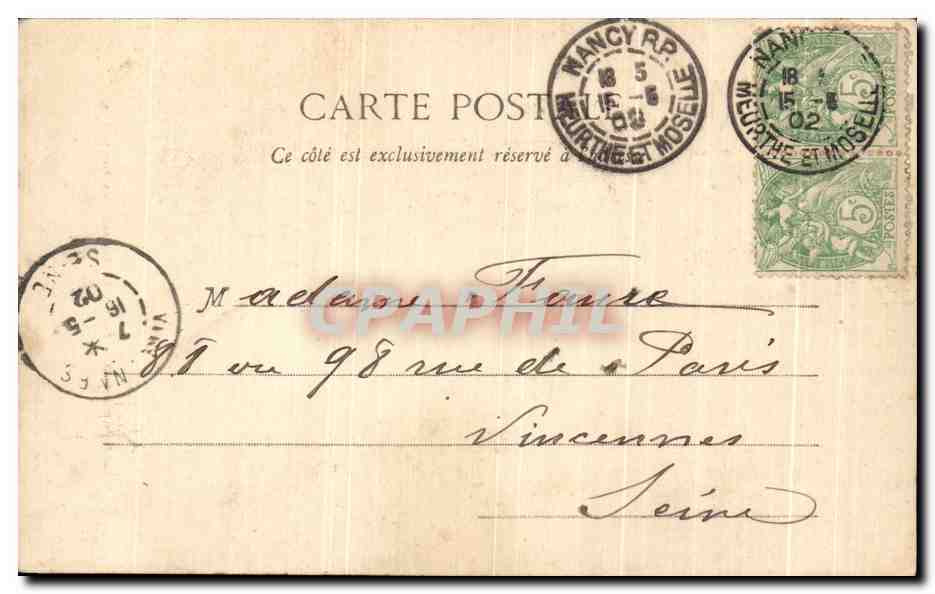 NANCY R.P.
18 5
15 -5
02
MEURTHE ET MOSELLE
18
15 -5
02
MEURTHE ET MOSELLE
5c
POSTES
5c
POSTES
CARTE POSTALE
Ce côté est exclusivement réservé à l'adresse
SEINE
7
16 -5
02
Madame Faure
88 ou 98 rue de Paris
Vincennes
Seine
CPAPHIL